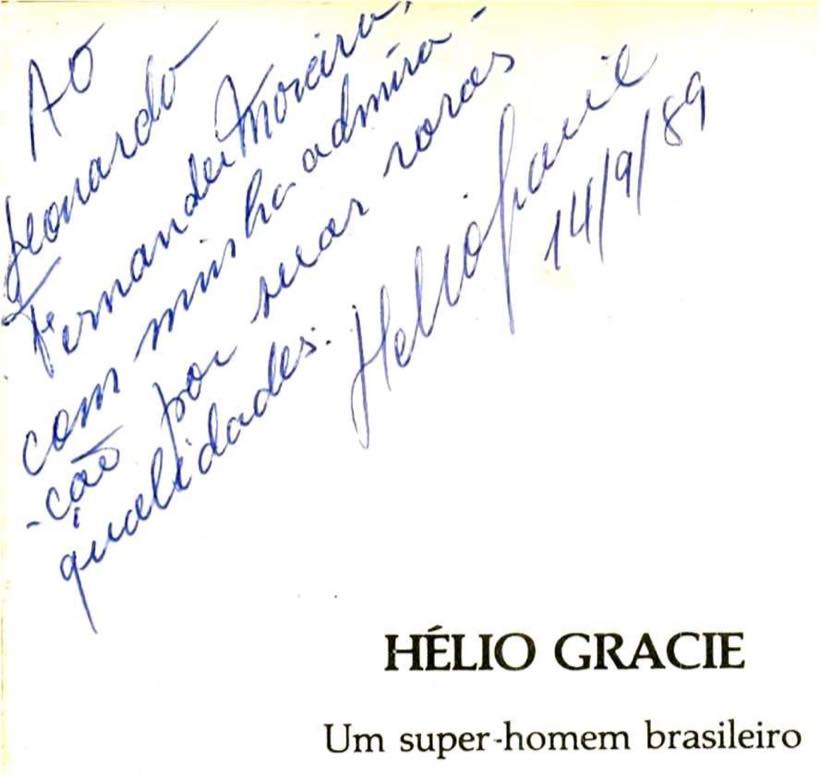 Ao
Leonardo
Fernandes Moreira,
com minha admira-
-ção por suas raras
qualidades.
Helio Gracie
14/9/89
HÉLIO GRACIE
Um super-homem brasileiro